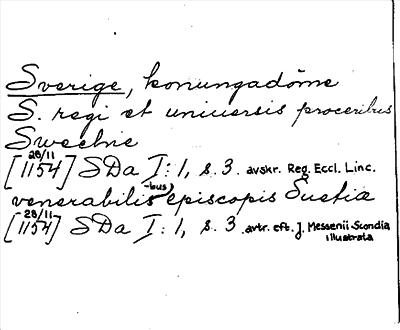 Sverige, konungadöme
S. regi et universis proceribus
Swechie
[28/11 1154] SDa I:1, s. 3. avskr. Reg. Eccl. Linc.
venerabilis (-bus) episcopis Suetia
[28/11 1154] SDa I:1, s. 3. avtr. eft. J. Messenii Scondia
illustrata